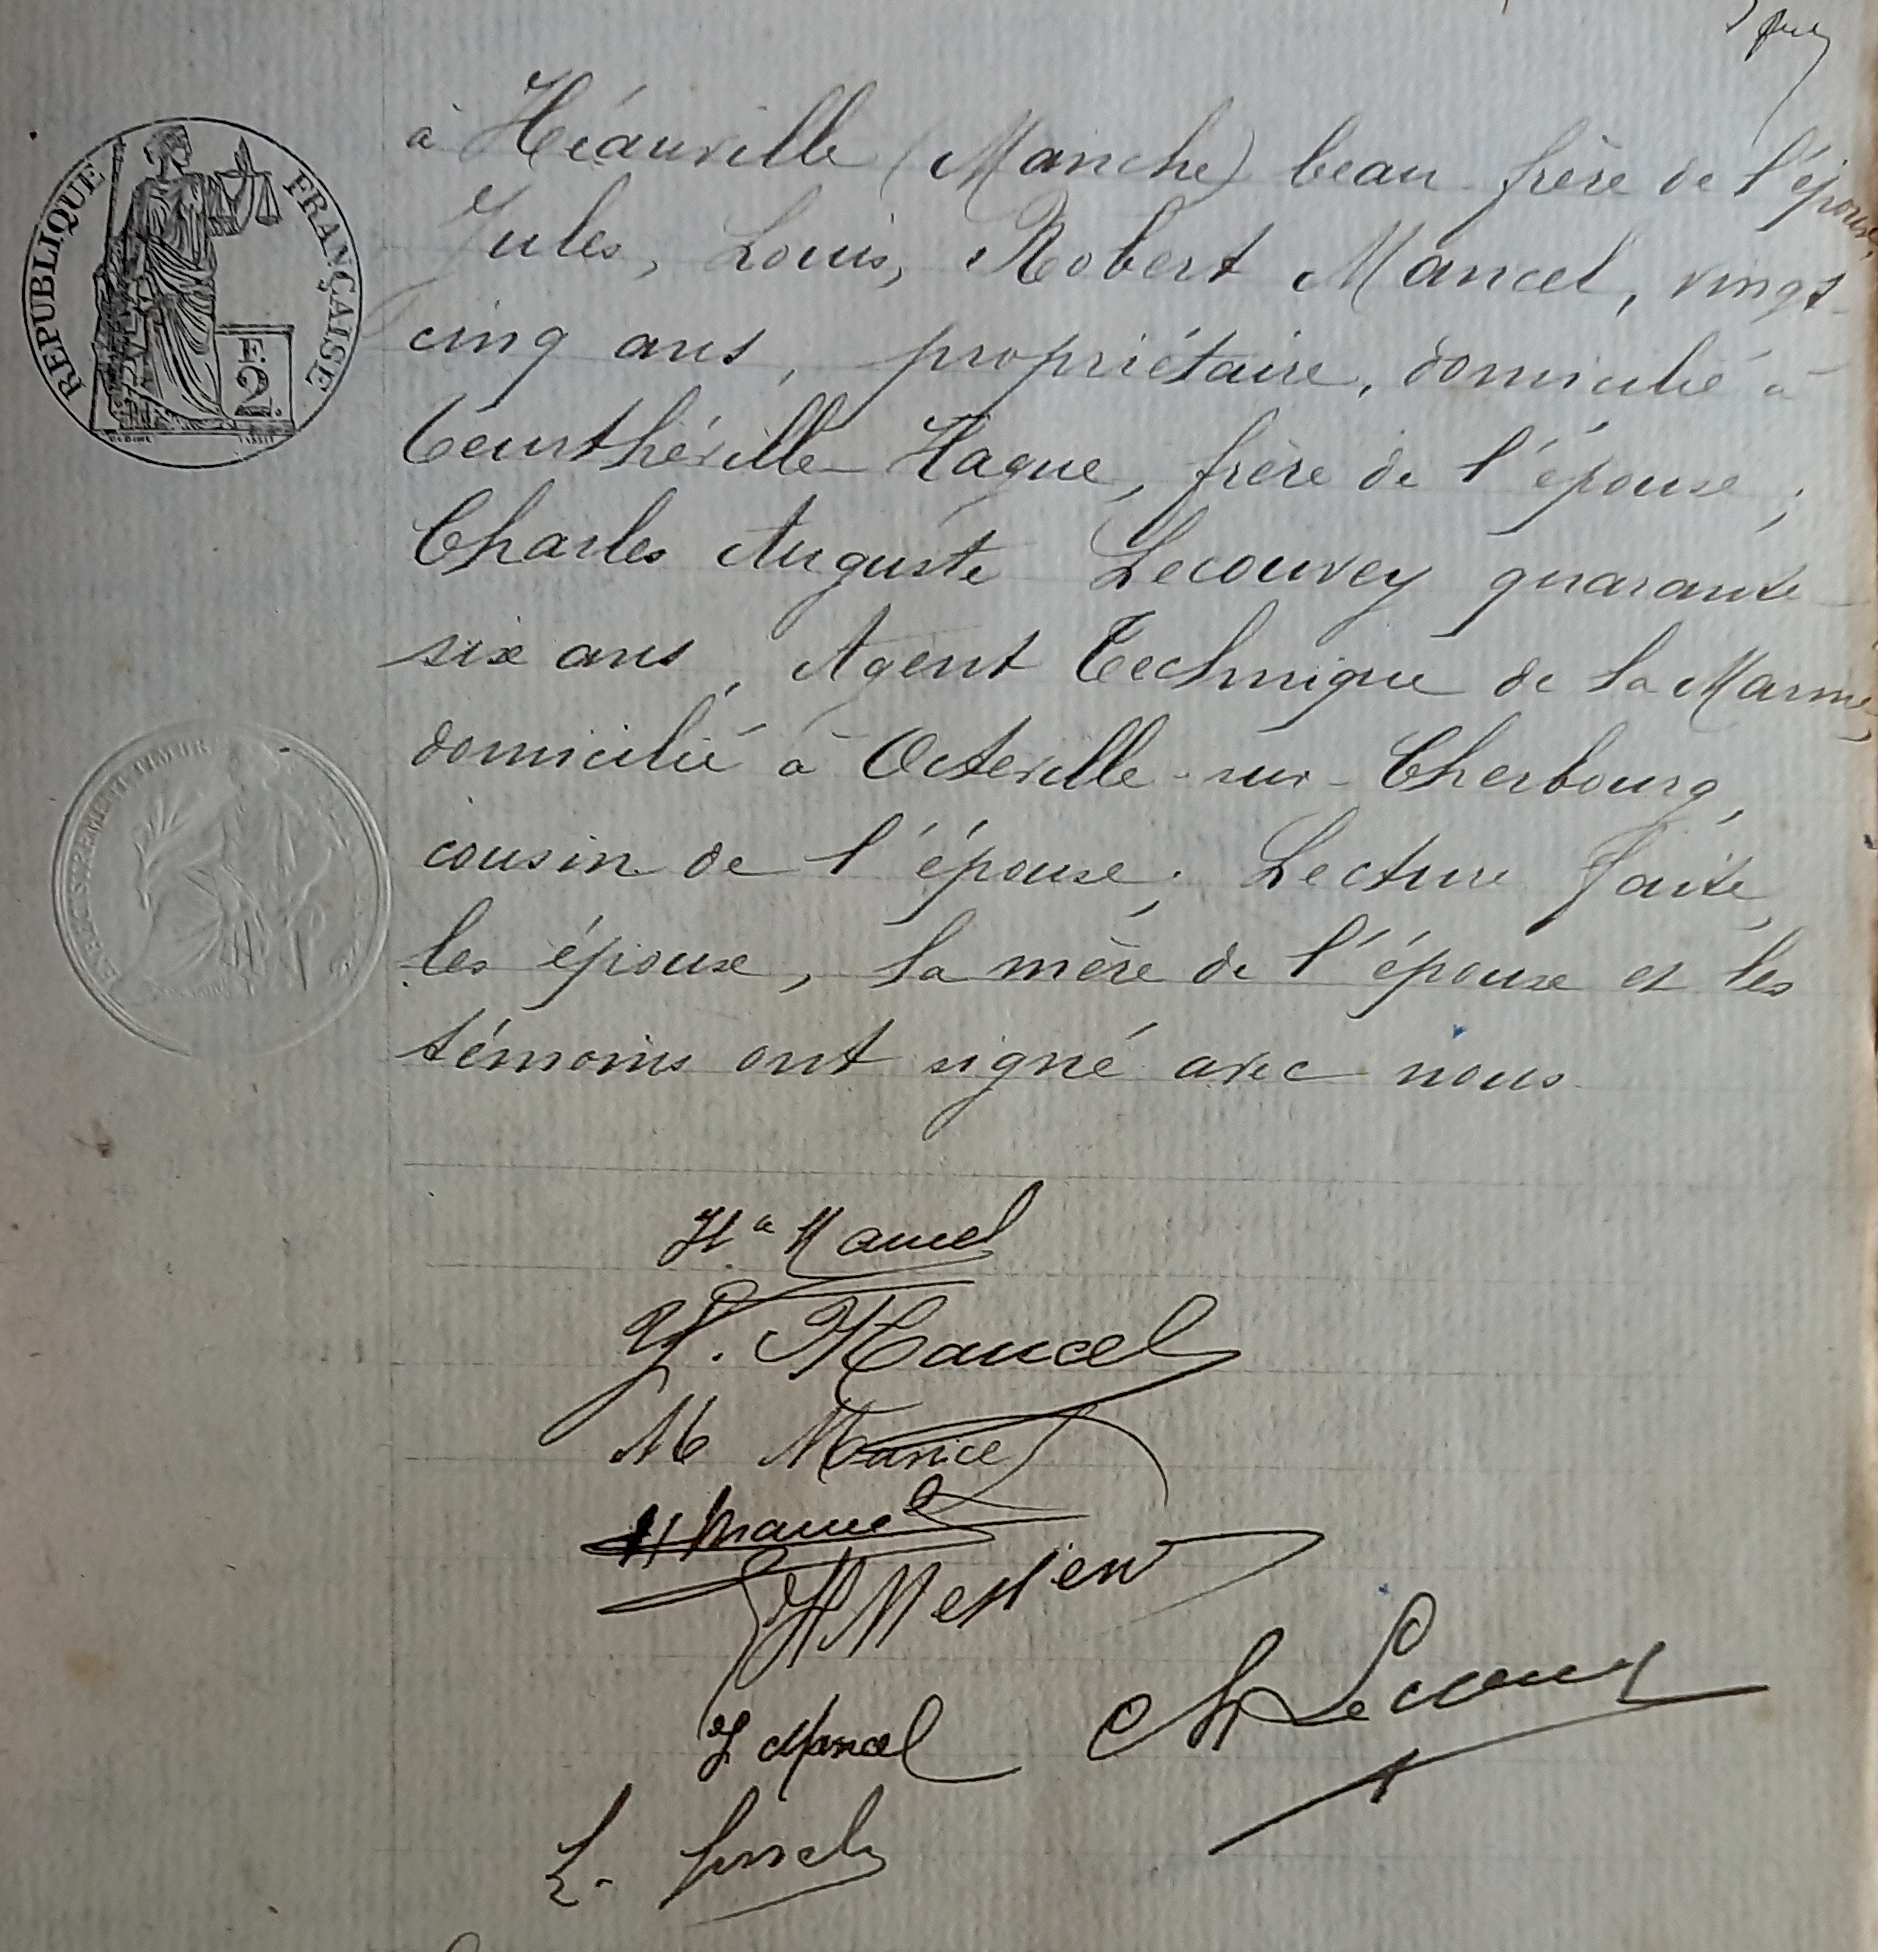 à Héauville (Manche) beau-frère de l'épouse,
Jules, Louis, Robert Mancel, vingt-
cinq ans, propriétaire, domicilié à
Teurthéville-Hague, frère de l'épouse ;
Charles Auguste Lecouvey quarante-
six ans, Agent Technique de la Marine,
domicilié à Octeville-sur-Cherbourg,
cousin de l'épouse ; Lecture faite,
les époux, la mère de l'épouse et les
témoins ont signé avec nous
REPUBLIQUE FRANÇAISE
2 F.
ENREGISTREMENT TIMBRE
Mancel
Mancel
M
Mancel
J Mancel
Ch Lecouvey
L.